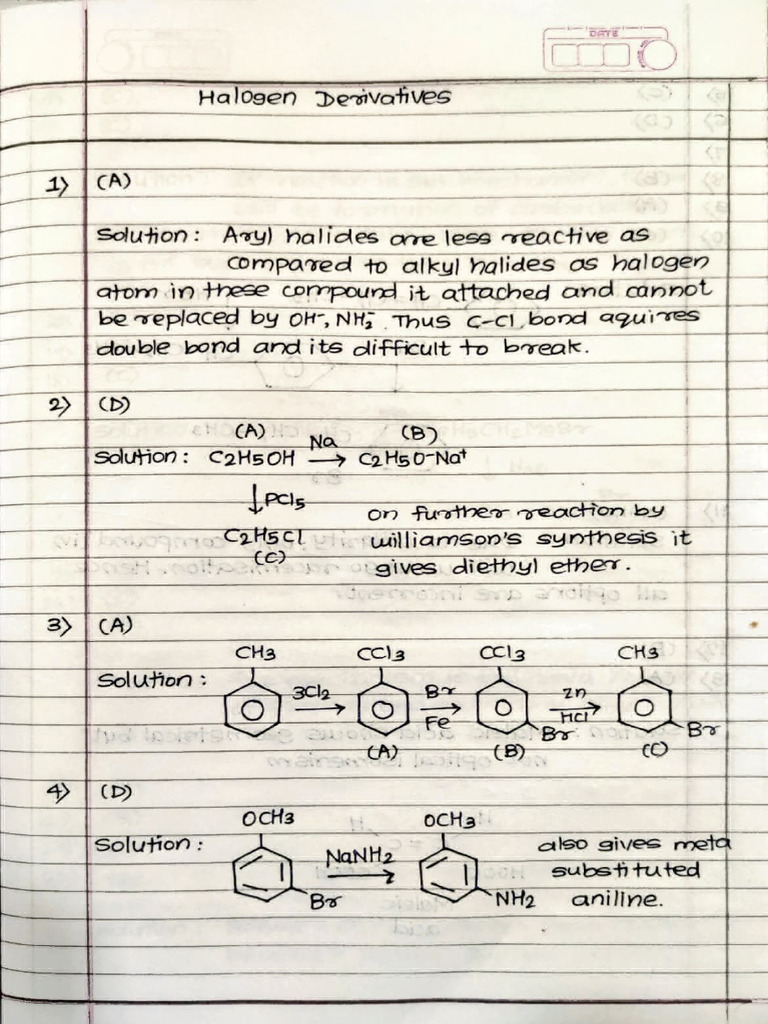 DATE
Halogen Derivatives
1) (A)
Solution: Aryl halides are less reactive as
compared to alkyl halides as halogen
atom in these compound it attached and cannot
be replaced by OH⁻, NH₂⁻. Thus C-Cl bond aquires
double bond and its difficult to break.
2) (D)
(A) Na (B)
Solution: C2H5OH → C2H5O⁻Na⁺
↓PCl5 on further reaction by
C2H5Cl williamson's synthesis it
(C) gives diethyl ether.
3) (A)
CH3 CCl3 CCl3 CH3
Solution: 3Cl2 → Br Fe → Zn HCl →
Br Br
(A) (B) (C)
4) (D)
OCH3 OCH3
Solution: NaNH2 → also gives meta
substituted
Br NH2 aniline.